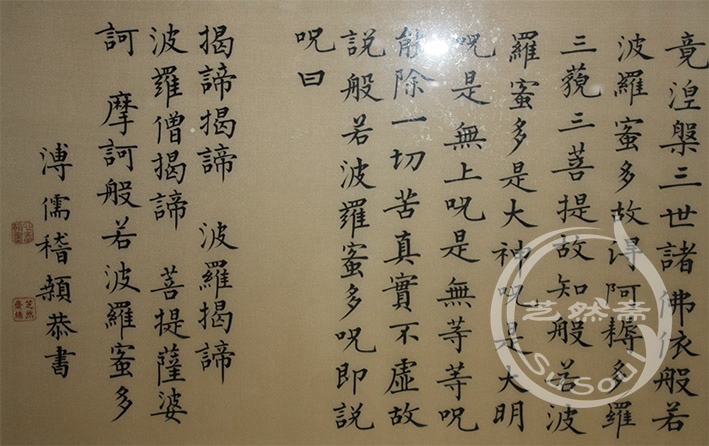 竟湼槃三世諸佛依般若
波羅蜜多故得阿耨多羅
三藐三菩提故知般若波
羅蜜多是大神呪是大明
呪是無上呪是無等等呪
能除一切苦真實不虛故
説般若波羅蜜多呪即説
呪曰
揭諦揭諦 波羅揭諦
波羅僧揭諦 菩提薩婆
訶 摩訶般若波羅蜜多
溥儒稽顙恭書
芝然斋